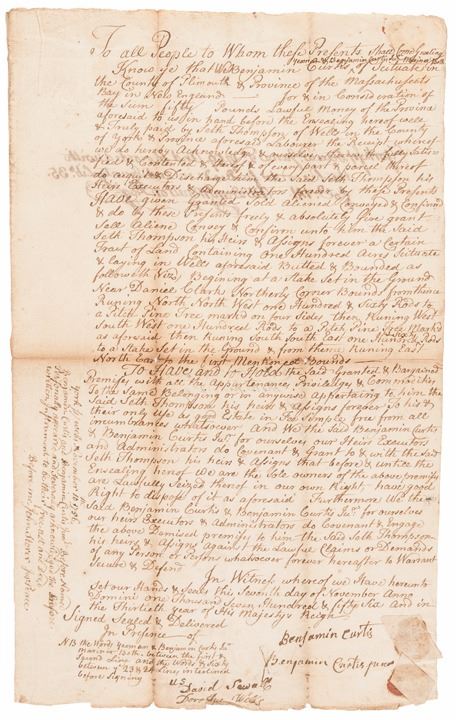 To all People to Whom these Presents Shall Come Greeting
Know ye that We Benjamin Curtis of Scituate in
yeoman & Benjamin Curtis Jur
the County of Plimouth & Province of the Massachusets
Bay in New England for & in Consideration of
the Sum fifty Pounds Lawfull Money of the Province
aforesaid to us in hand before the Ensealing hereof well
& Truly paid by Seth Thompson of Wells in the County
of York & Province aforesaid Labourer the Receipt whereof
we do hereby Acknowledge & ourselves
& Contented & thereof & of every part &
do acquit & Discharge him the Said Seth Thompson his
Heirs Executors & Administrators forever by these Presents
Have given Granted Sold Aliened Conveyed & Confirmd
& do by these Presents freely & absolutely Give grant
Sell Aliene Convey & Confirm unto him the Said
Seth Thompson his Heirs & Assigns forever a Certain
Tract of Land Containing One Hundred Acres Scituate
& laying in Wells aforesaid Butted & Bounded as
followeth Beginning at a Stake Set in the Ground
Near Daniel Clark Northerly Corner Bounds from thence
Runing North North West one Hundred & Sixty Rods to
a Pitch Pine Tree markd on four Sides then Runing West
South West one Hundred Rods to a Pitch Pine Tree Markd
as aforesaid then Runing South South East one Hundred
& Sixty Rods
to a Stake Set in the Ground & from thence Runing East
North East to the first Mentioned Bounds
To Have and to Hold the Said Granted & Bargained
Premises with all the Appurtenances Priviledges & Commodities
To the Same Belonging or in anywise Appertaining to him the
Said Seth Thompson his heirs & Assigns forever to his &
their only Use as an Estate in Fee Simple free from all
incumbrances whatsoever And We the Said Benjamin Curtis
& Benjamin Curtis Junr for ourselves our Heirs Executors
and Administrators do Covenant & Grant to & with the Said
Seth Thompson his heirs & Assigns that before & untill the
Ensealing hereof we are the Sole owners of the above premises
are Lawfully Seized thereof in our own Right have good
Right to dispose of it as aforesaid Furthermore We the
Said Benjamin Curtis & Benjamin Curtis Junr for ourselves
our Heirs Executors & Administrators do Covenant & Engage
the above Demised premises to him the Said Seth Thompson
his heirs & Assigns against the Lawful Claims or Demands
of any Person or Persons whatsoever forever hereafter to Warrant
Secure & Defend
In Witness whereof we Have hereunto
Set our Hands & Seals this Seventh day of November Anno
Domini One Thousand Seven Hundred & fifty Six And in
the Thirtieth year of His Majestys Reign
Signed Sealed & Delivered
In Presence of
NB the Words yeoman & Benjamin Curtis Jur
mariner Both between the first &
Second Line and the Words & Sixty
between ye 23 & 24 Lines interlined
before Signing
us
David Sewall
Dorothy Wells
Benjamin Curtis
Benjamin Curtis junr
Benjamin Curtis and Benjamin Curtis